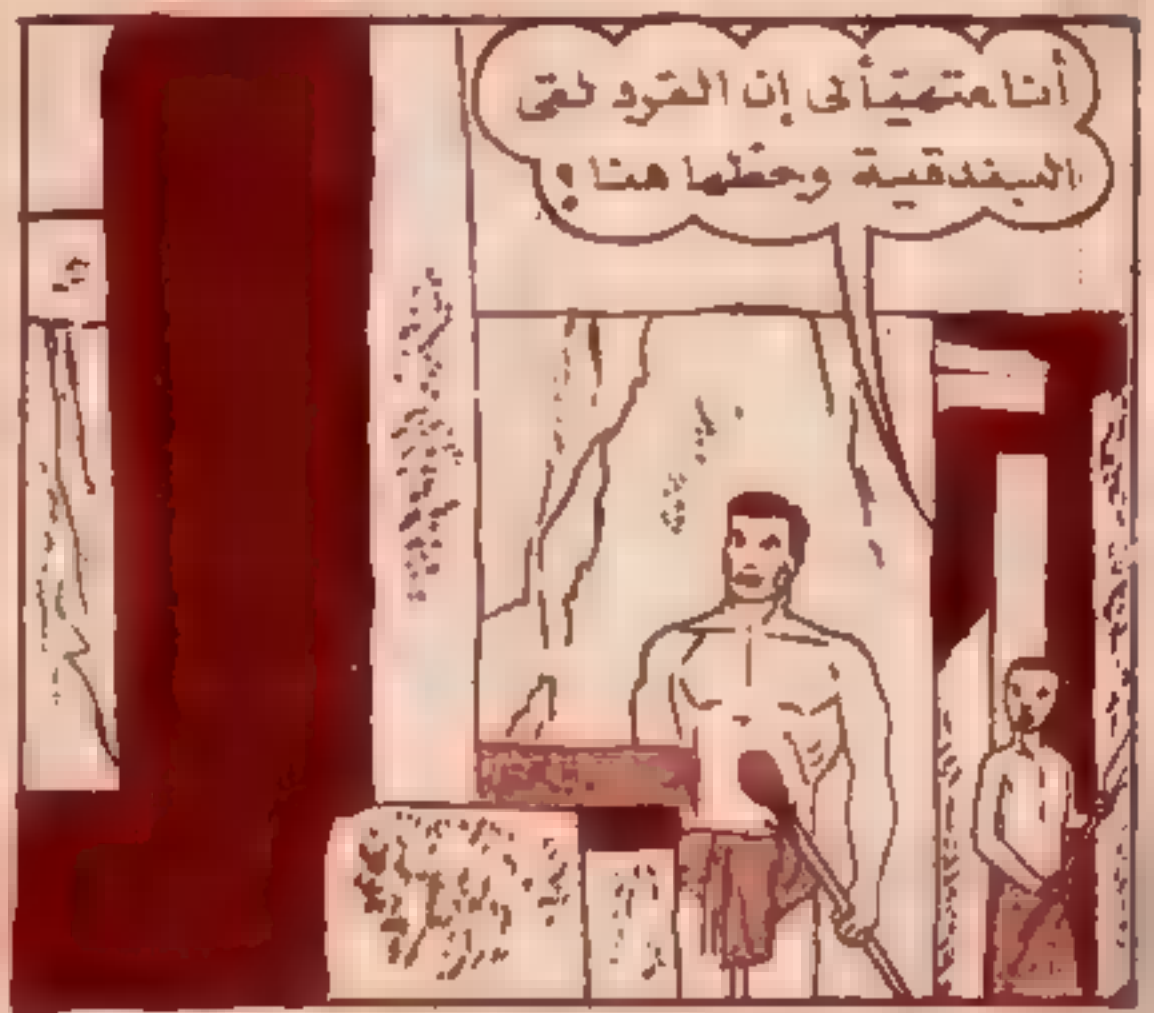 أنا متهيّألى إن القرد لقى
البندقية وحطها هنا !